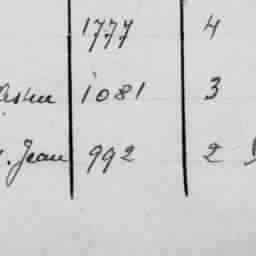 1777 4
1081 3
Jean 992 2